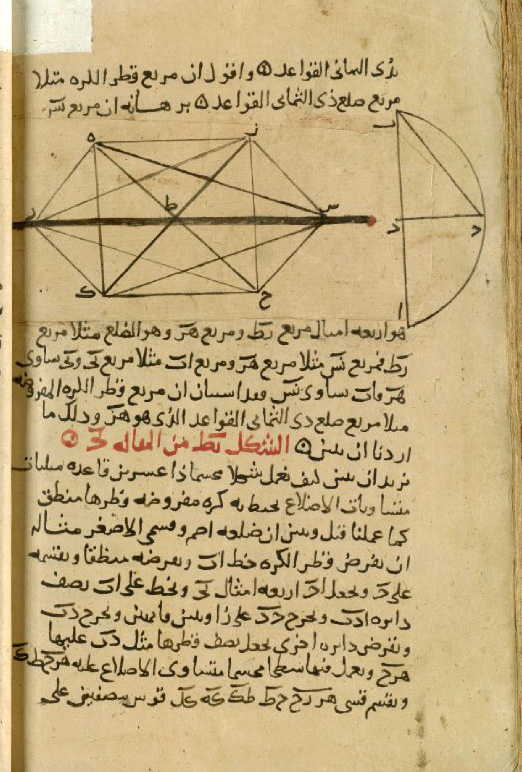 لذى الثمانى القواعد ۞ واقول ان مربع قطر الكره مثلا
مربع ضلع ذى الثمانى القواعد ۞ برهانه ان مربع
ب
ه ز
ط س
د
ك ح
ا
هو اربعه امثال مربع ومربع هز وهو الضلع مثلا مربع
فمربع مثلا مربع هز ومربع اب مثلا مربع يساوى
هز يساوى فقد استبان ان مربع قطر الكره المفروضه
مثلا مربع ضلع ذى الثمانى القواعد الذى هو هز وذلك ما
اردنا ان نبين ۞ الشكل يط من المقاله يج ۞
نريد ان نبين كيف نعمل شكلا مجسما ذا عشرين قاعده مثلثات
متساويات الاضلاع تحيط به كره مفروضه قطرها منطق
كما عملنا قبل ونبين ان ضلعه اصم ويسمى الاصغر مثاله
ان نفرض قطر الكره خط اب ونفرضه منطقا ونقسمه
على ج ونجعل اج اربعه امثال ونخط على اب نصف
دايره ادب ونخرج جد على زاويتين قايمتين ونخرج دب
ونفرض دايره اخرى نجعل نصف قطرها مثل دب عليها
هزح ونعمل فيها سطحا مخمسا متساوى الاضلاع عليه هزحطك
ونقسم قسى هز زح حط طك كه كل قوس بنصفين على